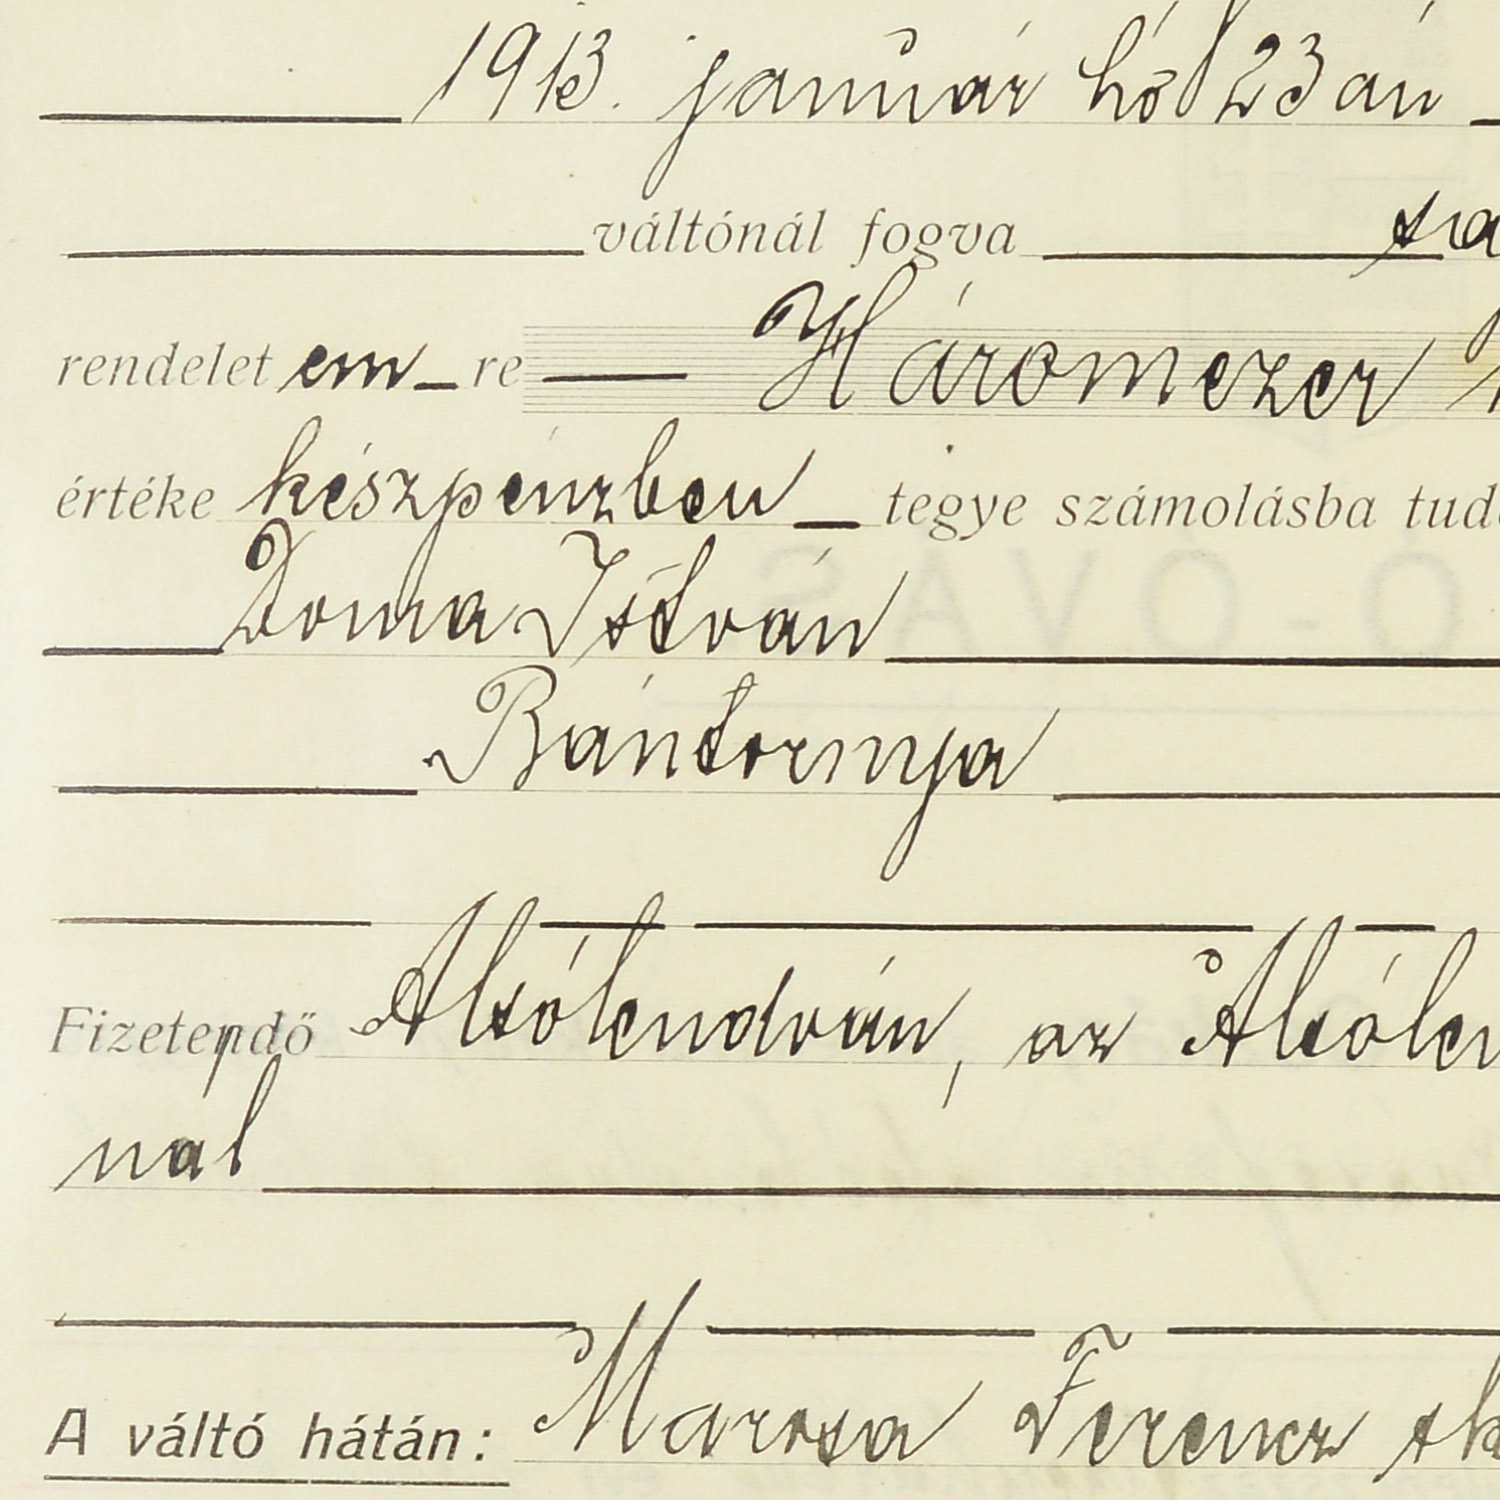 1913. január hó 23 án
váltónál fogva sa
rendelet em re Háromezer
értéke készpénzben tegye számolásba tud
Doma István
Bántornya
Fizetendő Alsólendván, az Alsólen
nál
A váltó hátán: Marosa Ferencz sk